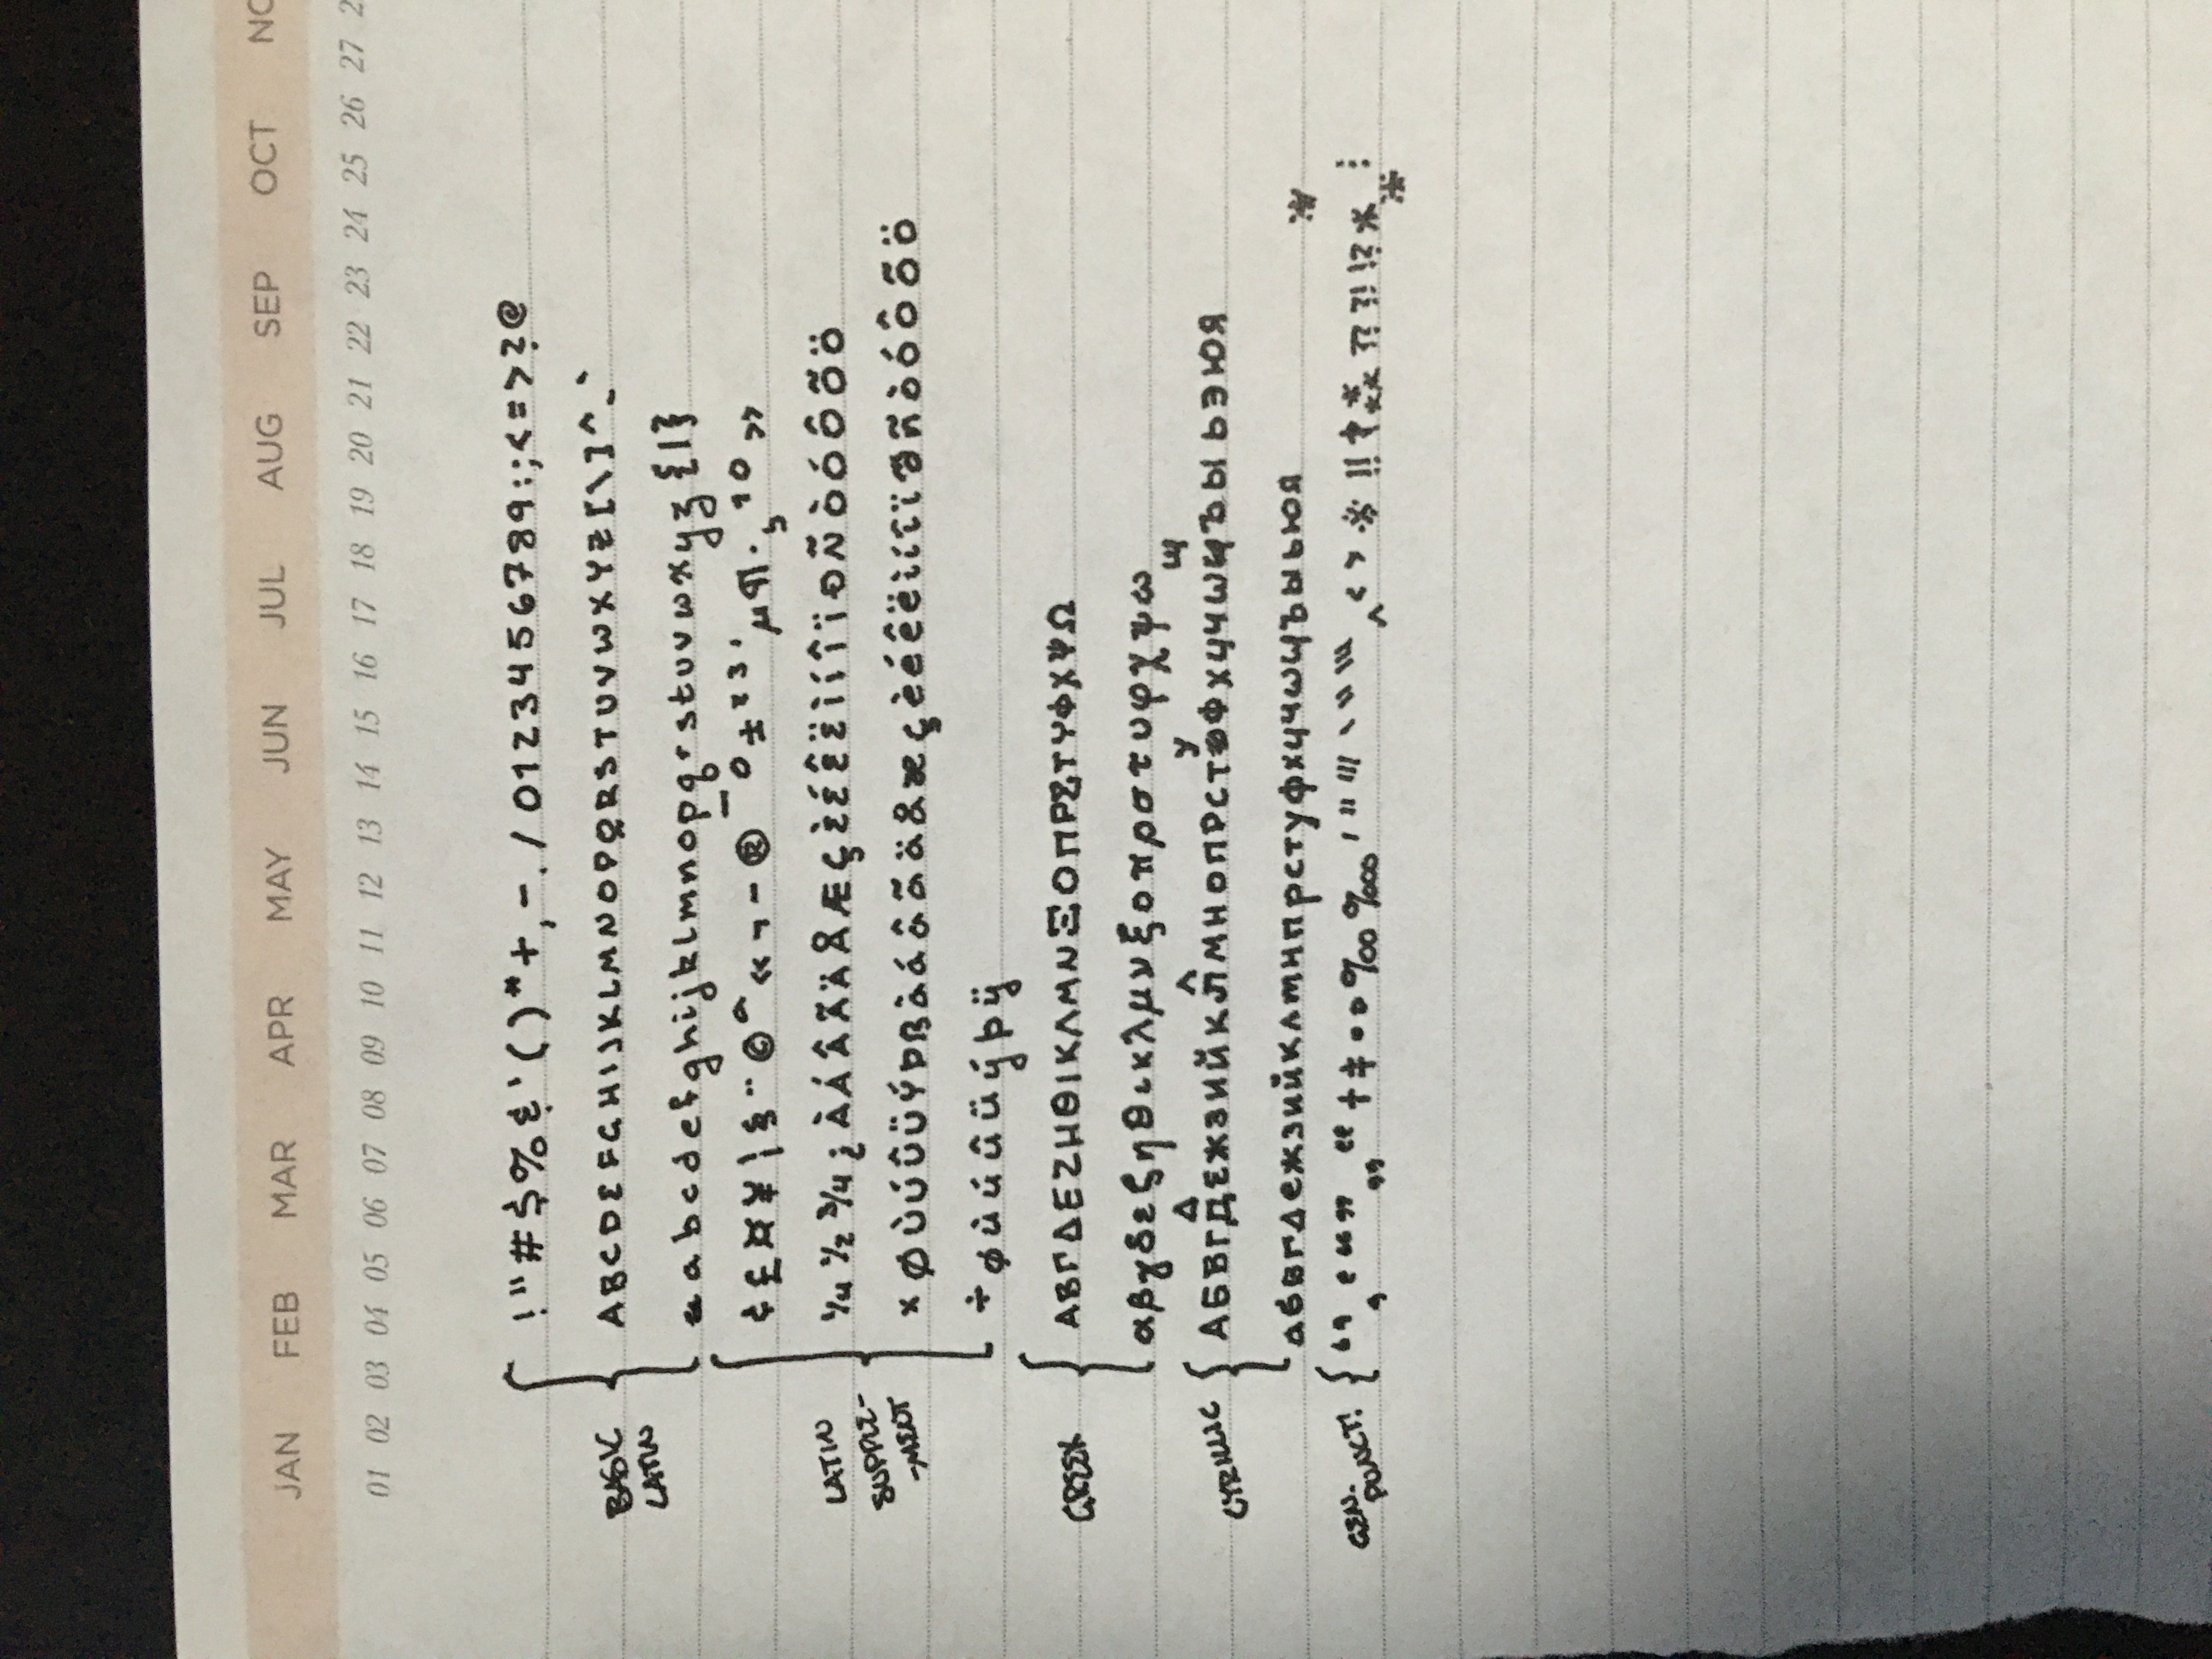 JAN FEB MAR APR MAY JUN JUL AUG SEP OCT
01 02 03 04 05 06 07 08 09 10 11 12 13 14 15 16 17 18 19 20 21 22 23 24 25 26 27
BASIC
LATIN
! " # $ % & ' ( ) * + , - . / 0 1 2 3 4 5 6 7 8 9 : ; < = > ? @
A B C D E F G H I J K L M N O P Q R S T U V W X Y Z [ \ ] ^ _ `
a b c d e f g h i j k l m n o p q r s t u v w x y z { | }
LATIN
SUPPLE-
-MENT
¢ £ ¤ ¥ ¦ § ¨ © ª « ¬ - ® ¯ ° ± ² ³ ´ µ ¶ · ¸ ¹ º »
¼ ½ ¾ ¿ À Á Â Ã Ä Å Æ Ç È É Ê Ë Ì Í Î Ï Ð Ñ Ò Ó Ô Õ Ö
× Ø Ù Ú Û Ü Ý Þ ß à á â ã ä å æ ç è é ê ë ì í î ï ð ñ ò ó ô õ ö
÷ ø ù ú û ü ý þ ÿ
GREEK
Α Β Γ Δ Ε Ζ Η Θ Ι Κ Λ Μ Ν Ξ Ο Π Ρ Σ Τ Υ Φ Χ Ψ Ω
α β γ δ ε ζ η θ ι κ λ μ ν ξ ο π ρ σ τ υ φ χ ψ ω
CYRILLIC
Δ Λ У Щ
А Б В Г Д Е Ж З И Й К Л М Н О П Р С Т Ф Х Ц Ч Ш Ъ Ы Ь Э Ю Я
а б в г д е ж з и й к л м н п р с т у ф х ц ч ш щ ъ ы ь ю я
GEN.
PUNCT!
‘ ’ ‚ ‛ “ ” „ ‟ † ‡ ‰ ‱ ′ ″ ‴ ‵ ‶ ‷ ‸ ‹ › ※ ‼ ⁂ ⁇ ⁈ ⁉ ⁝